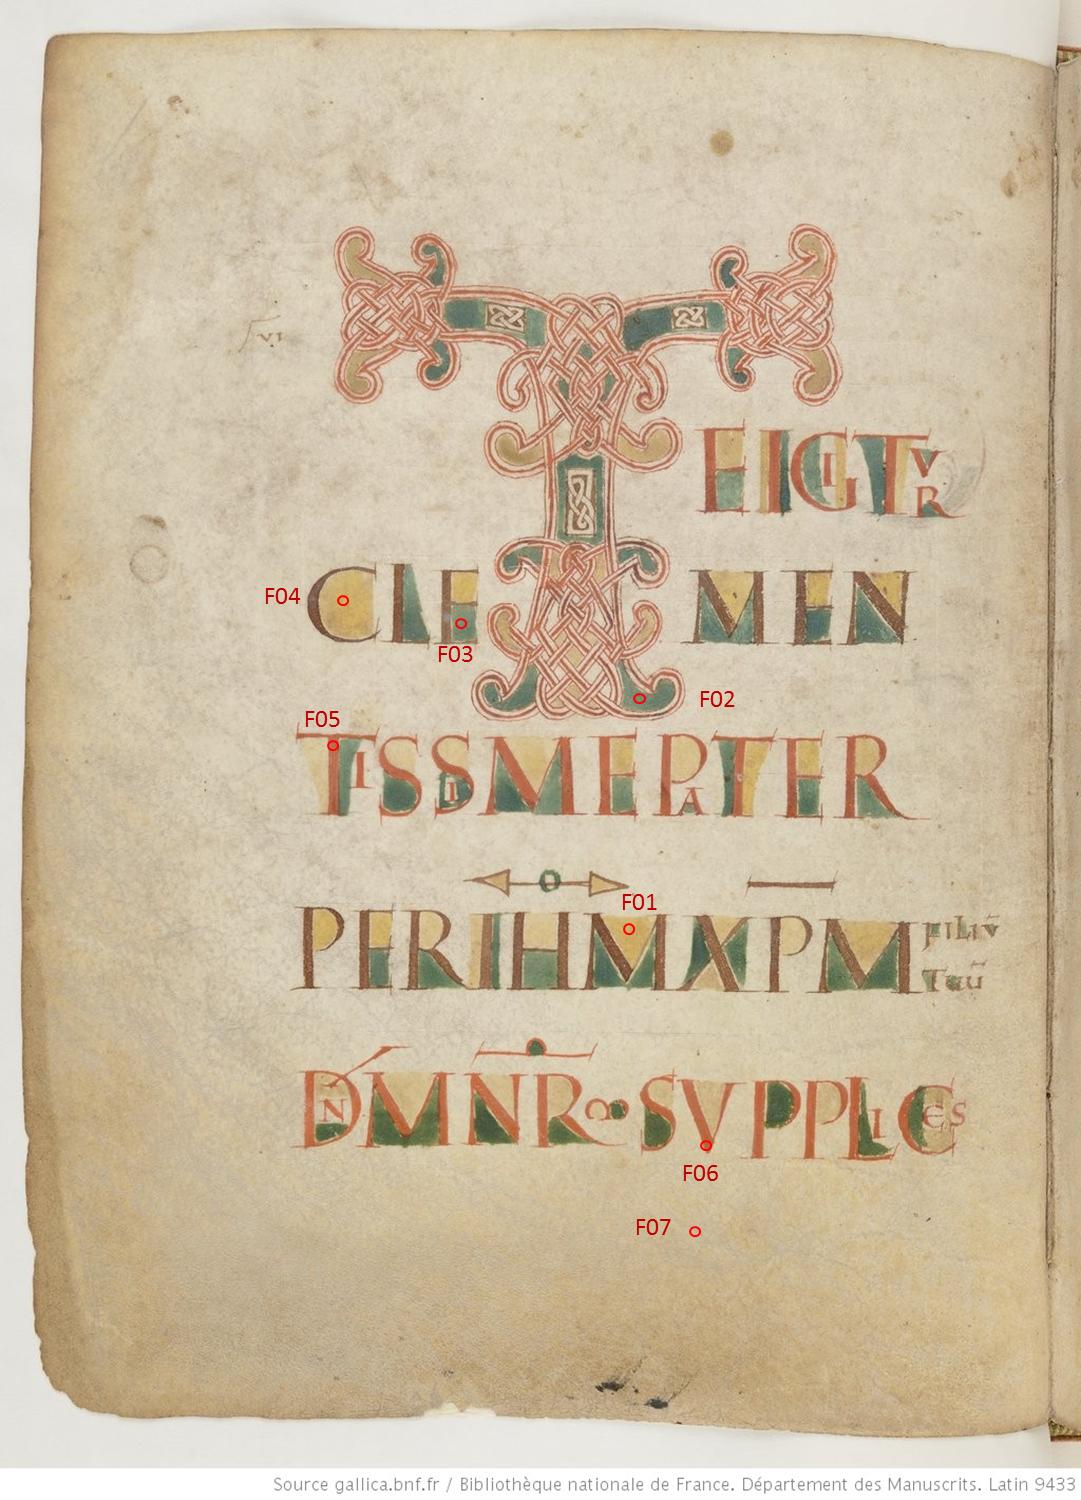 VI
TEIGITVR
F04
CLEMEN
F03
F02
F05
TISSIMEPATER
F01
PERIHMXPM FILIŪ TUŪ
DNMNRM SVPPLICES
F06
F07
Source gallica.bnf.fr / Bibliothèque nationale de France. Département des Manuscrits. Latin 9433